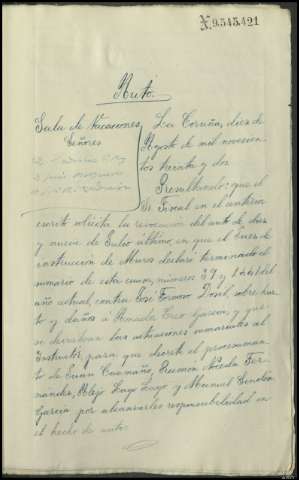 X 9.545.421
Auto.
Sala de Vacaciones
Señores
La Coruña, diez de
Agosto de mil novecien-
tos treinta y dos
Resultando: que el
Sr. Fiscal en el anterior
escrito solicita la revocación del auto de diez
y nueve de Julio último, en que el Juez de
instrucción de Muros declaró terminado el
sumario de esta causa, número 37 y del
año actual, contra José Formoso Dosil, sobre hur-
to y daños á Amada Garcia, y que
se devuelvan las actuaciones sumariales al
Instructor, para que decrete el procesamien-
to de Juan Caamaño, Ramon Fer-
nandez, Alejo Lago Lago y Manuel
Garcia por alcanzarles responsabilidad en
el hecho de autos